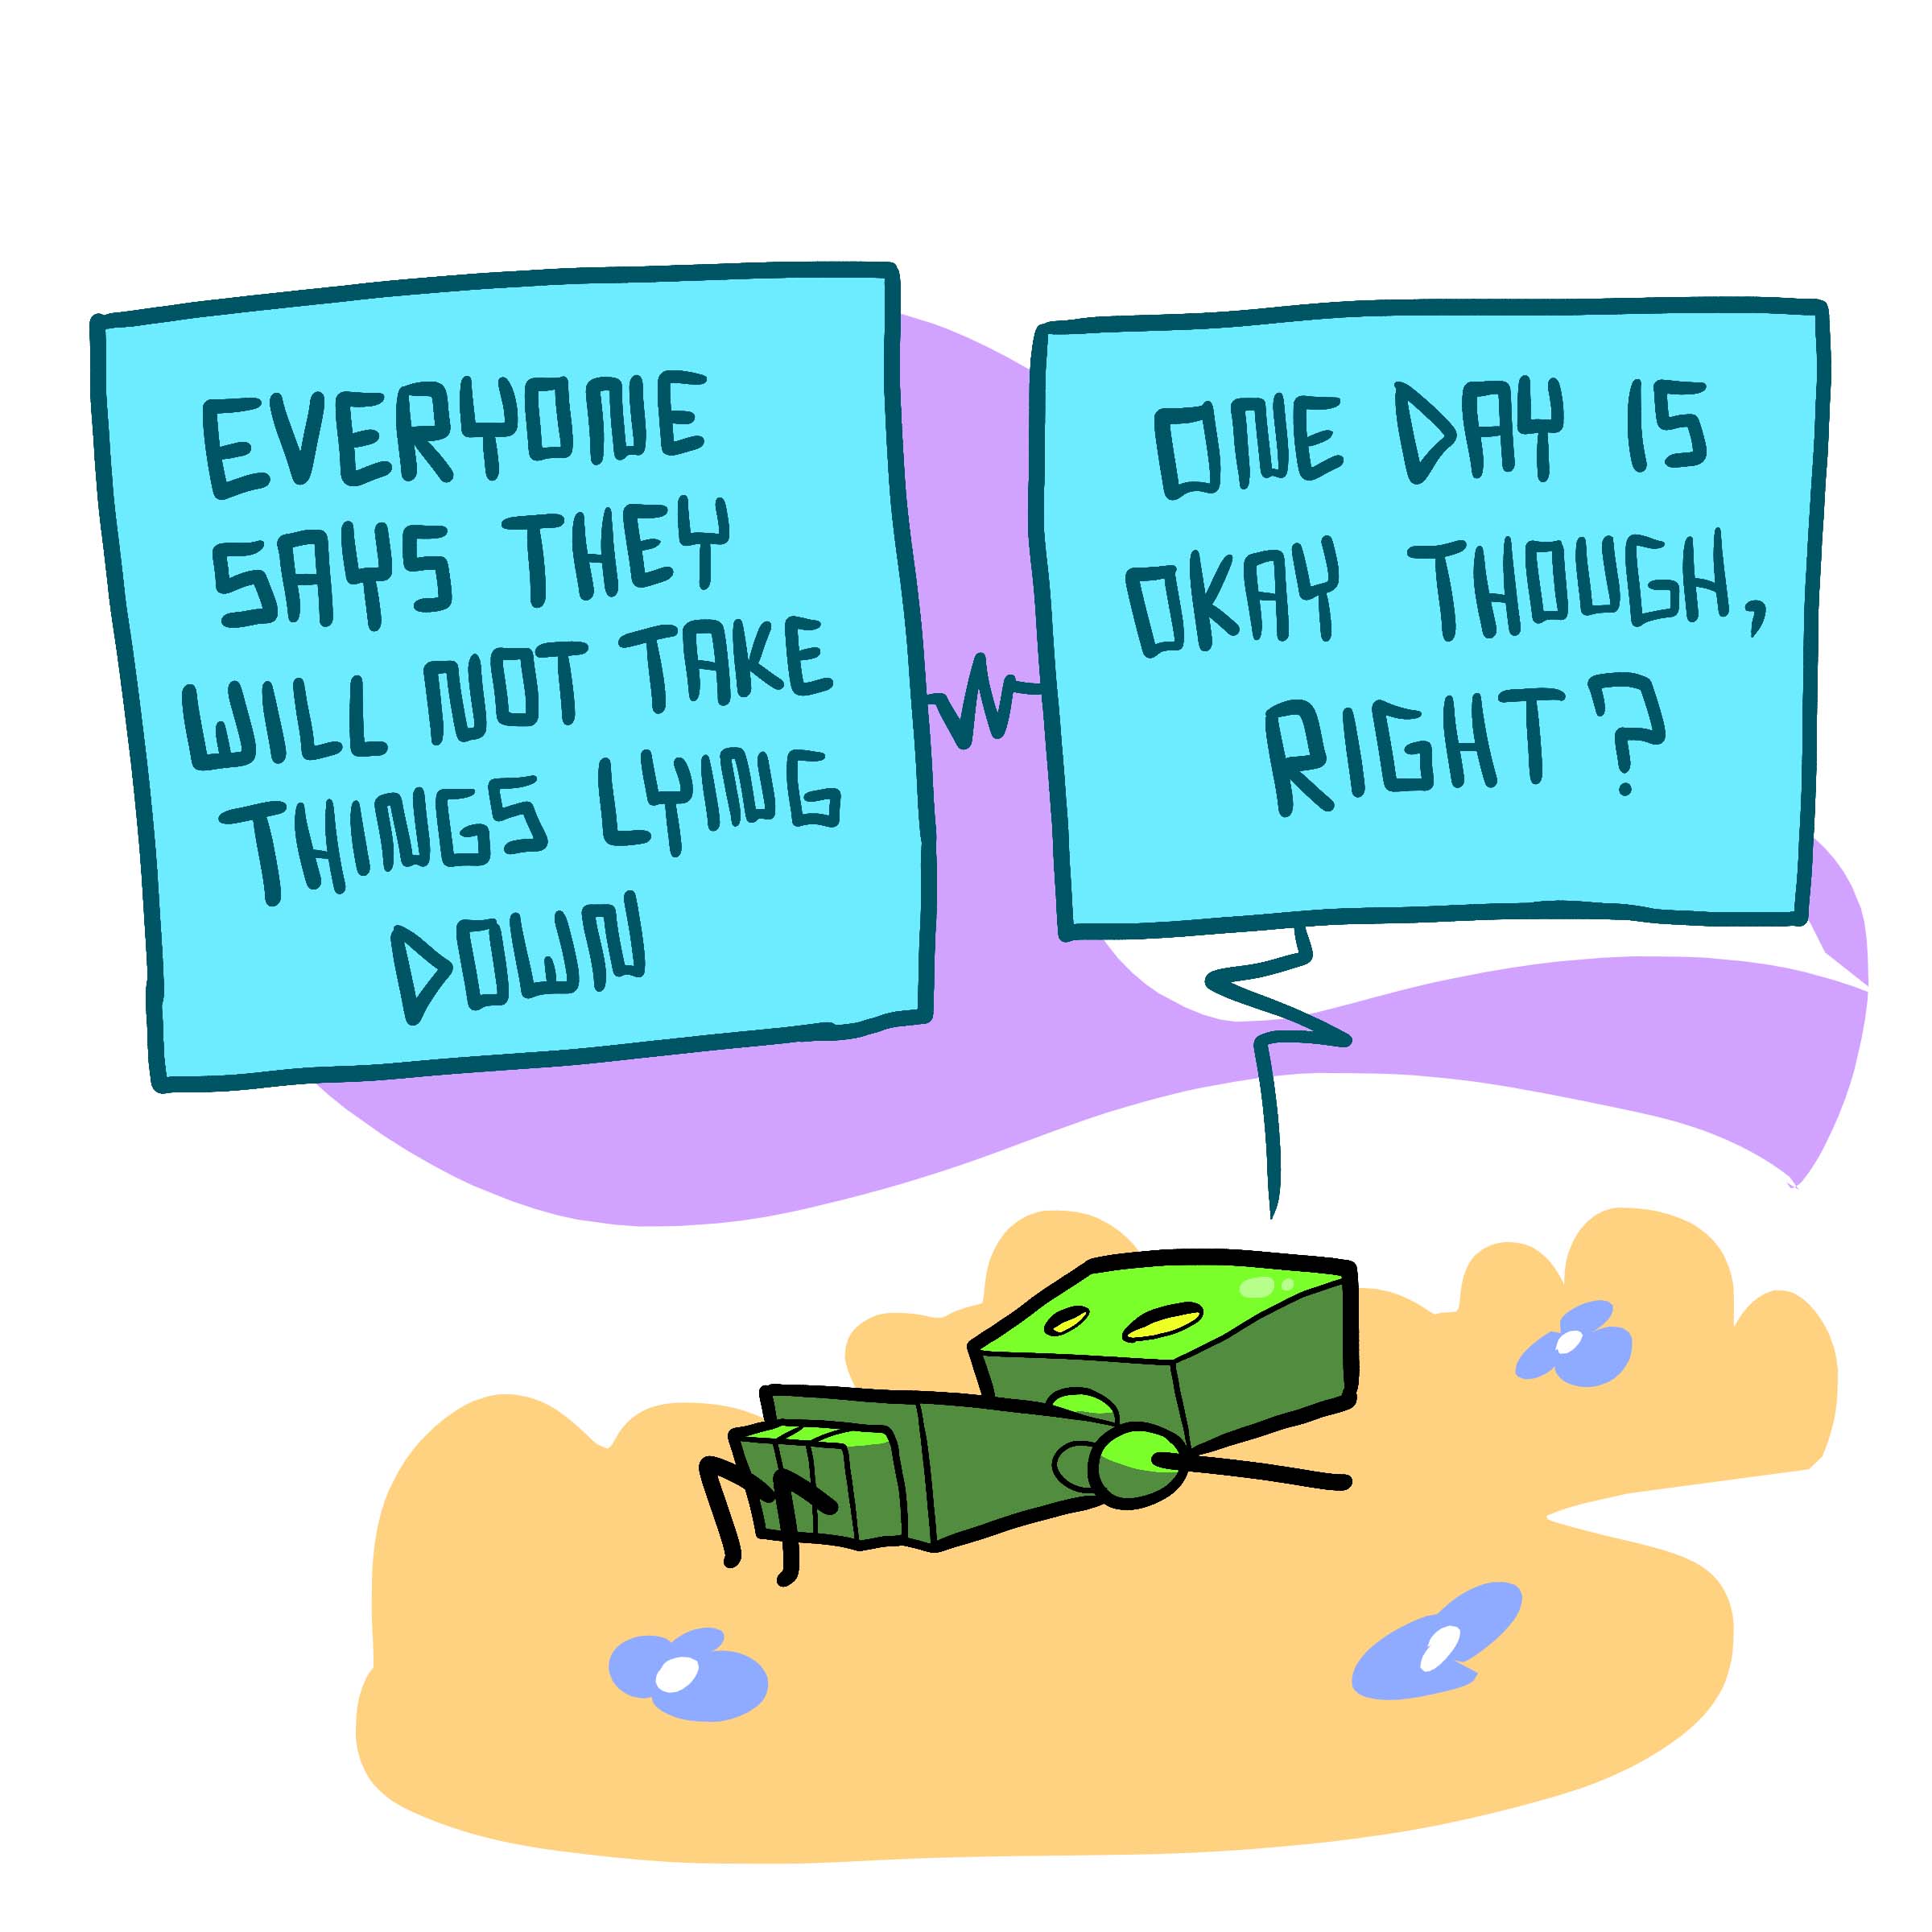 EVERYONE
SAYS THEY
WILL NOT TAKE
THINGS LYING
DOWN
ONE DAY IS
OKAY THOUGH,
RIGHT?